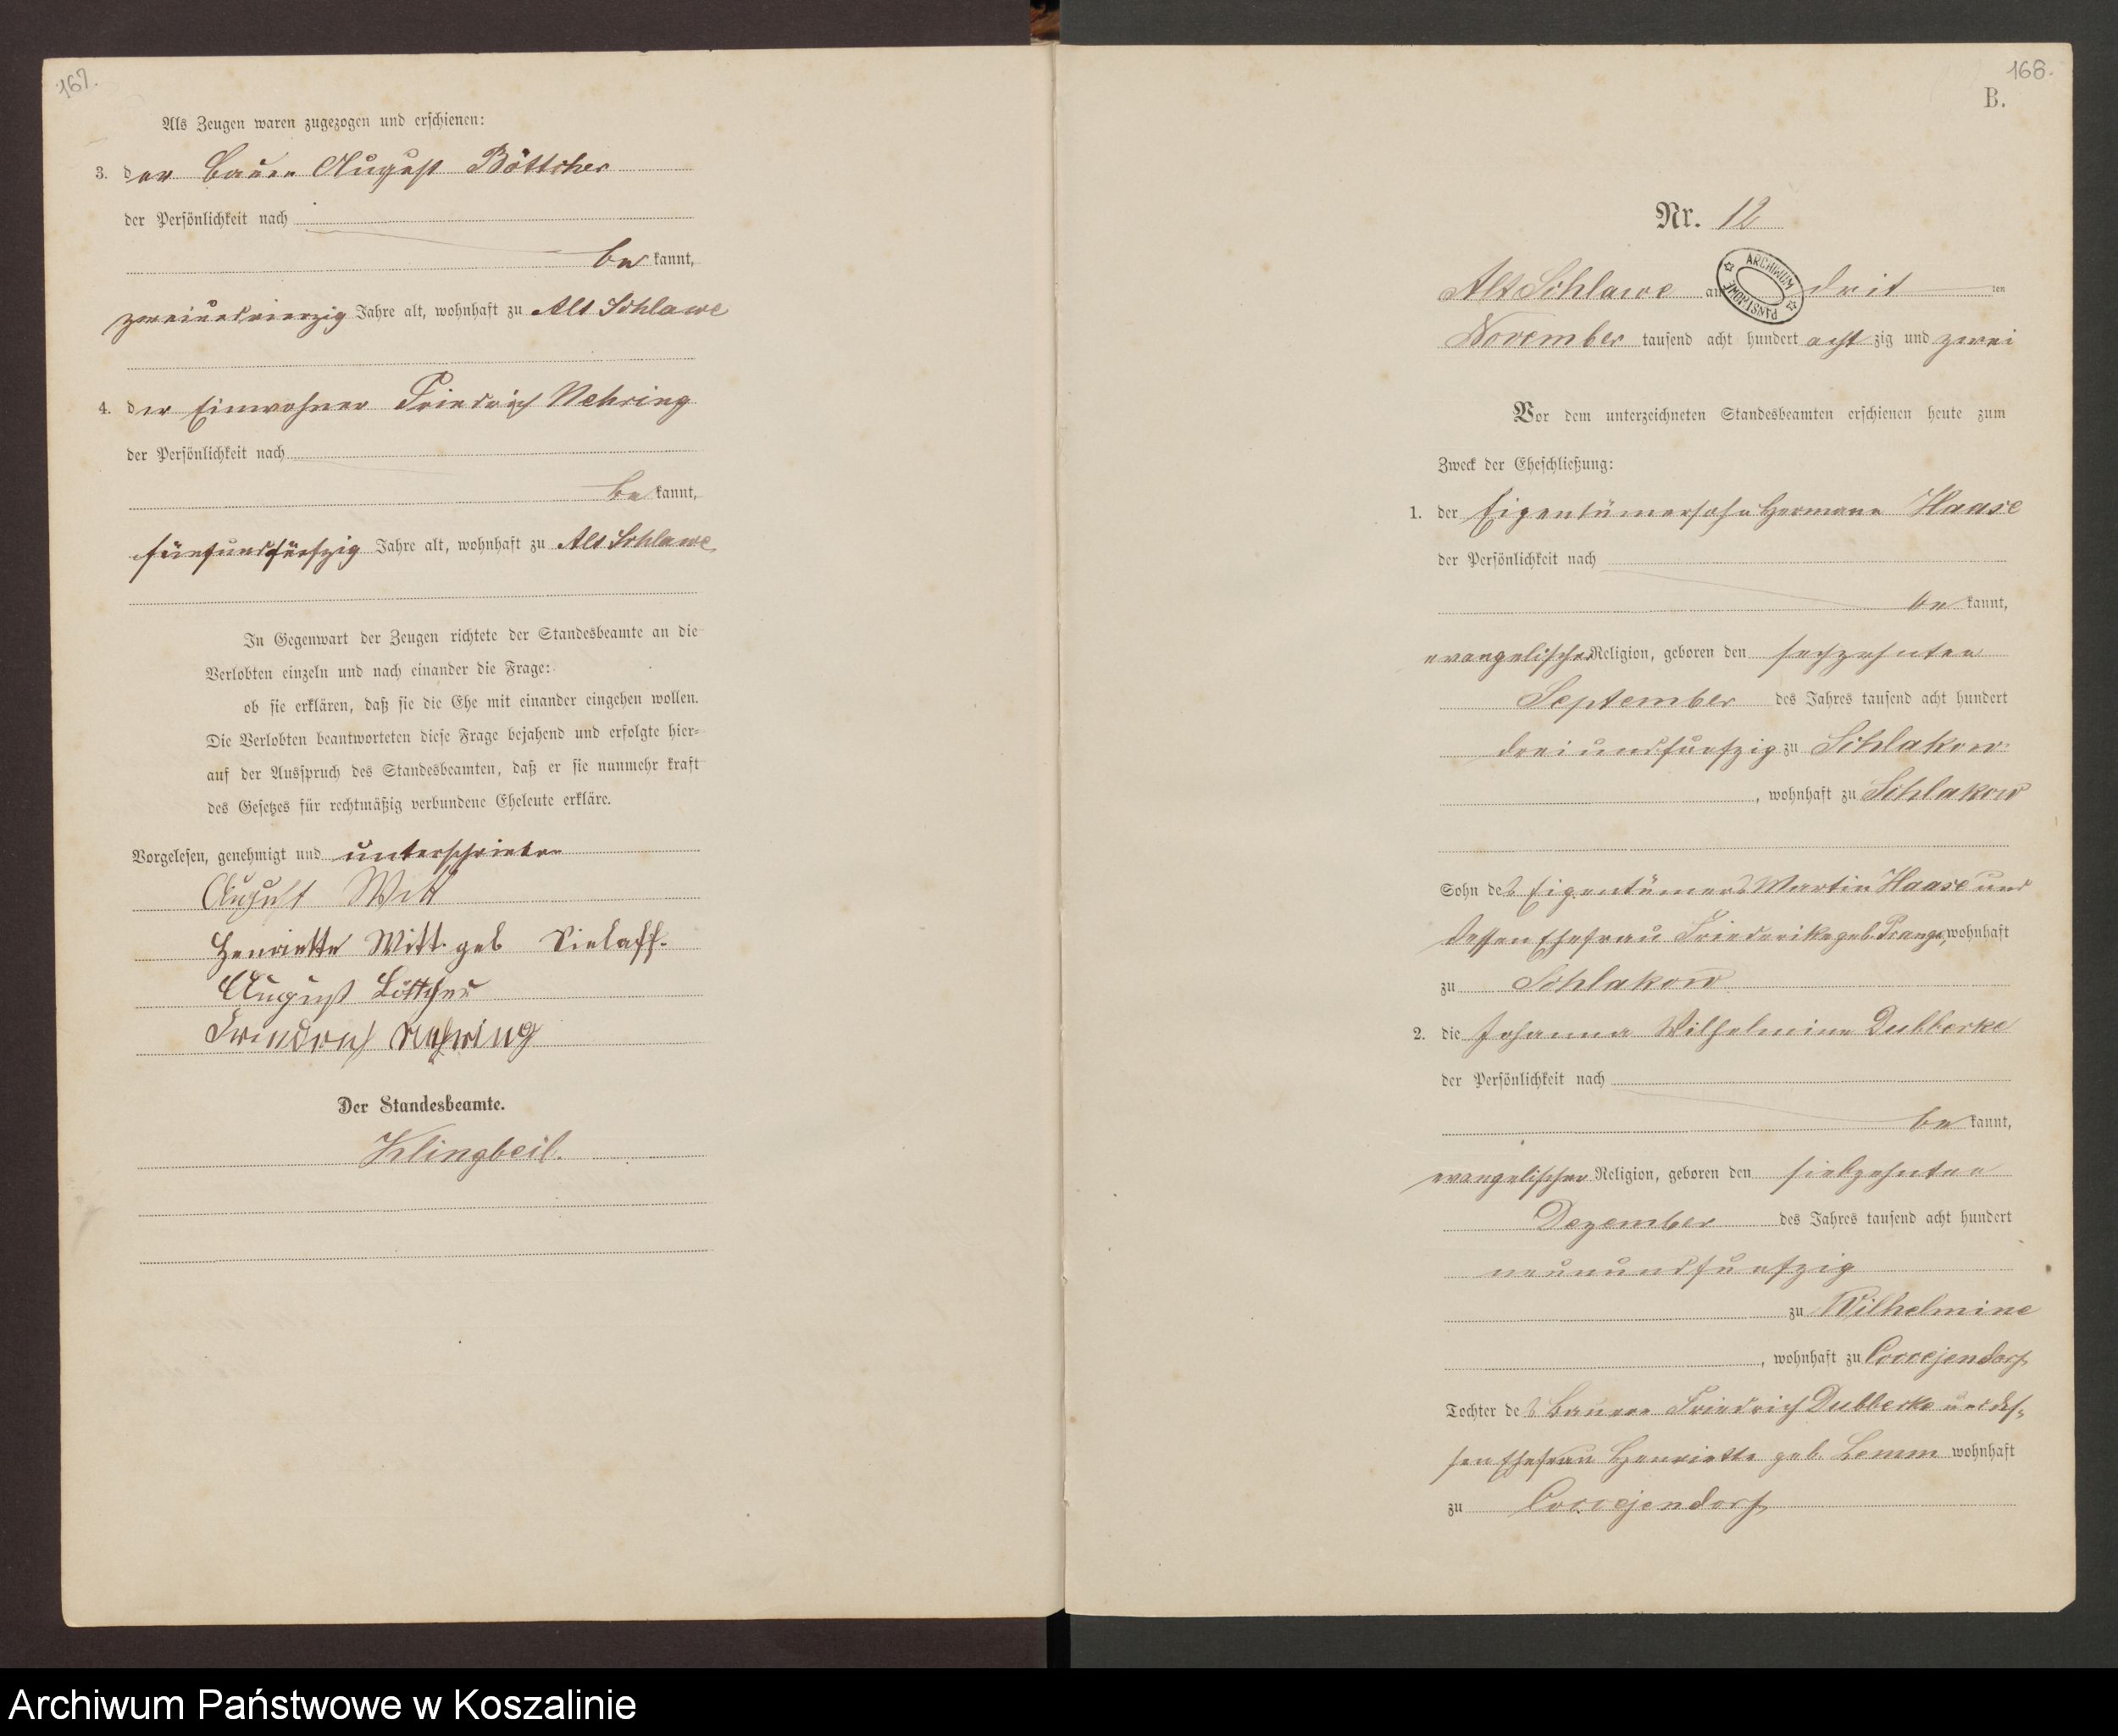 167.
Als Zeugen waren zugezogen und erschienen:
3. der Bauer August Böttcher
der Persönlichkeit nach
be kannt,
zweiundvierzig Jahre alt, wohnhaft zu Alt Schlawe
4. der Einwohner Friedrich Nehring
der Persönlichkeit nach
be kannt,
fünfundfünfzig Jahre alt, wohnhaft zu Alt Schlawe
In Gegenwart der Zeugen richtete der Standesbeamte an die
Verlobten einzeln und nach einander die Frage:
ob sie erklären, daß sie die Ehe mit einander eingehen wollen.
Die Verlobten beantworteten diese Frage bejahend und erfolgte hier-
auf der Ausspruch des Standesbeamten, daß er sie nunmehr kraft
des Gesetzes für rechtmäßig verbundene Eheleute erkläre.
Vorgelesen, genehmigt und unterschrieben
August Witt
Henriette Witt geb Sielaff.
August Böttcher
Friedrich Nehring
Der Standesbeamte.
Klingbeil.
168.
B.
Nr. 12
Alt Schlawe am drit ten
ARCHIWUM PAŃSTWOWE
November tausend acht hundert acht zig und zwei
Vor dem unterzeichneten Standesbeamten erschienen heute zum
Zweck der Eheschließung:
1. der Eigentümersohn Hermann Haase
der Persönlichkeit nach
be kannt,
evangelischer Religion, geboren den sechzehnten
September des Jahres tausend acht hundert
dreiundfunfzig zu Schlakow
, wohnhaft zu Schlakow
Sohn des Eigentümers Martin Haase und
dessen Ehefrau Friederike geb. Prange, wohnhaft
zu Schlakow
2. die Johanna Wilhelmine Dubberke
der Persönlichkeit nach
be kannt,
evangelischer Religion, geboren den siebzehnten
Dezember des Jahres tausend acht hundert
neunundfunfzig
zu Wilhelmine
, wohnhaft zu Coccejendorf
Tochter des Bauern Friedrich Dubberke und des-
sen Ehefrau Henriette geb. Lemm wohnhaft
zu Coccejendorf
Archiwum Państwowe w Koszalinie